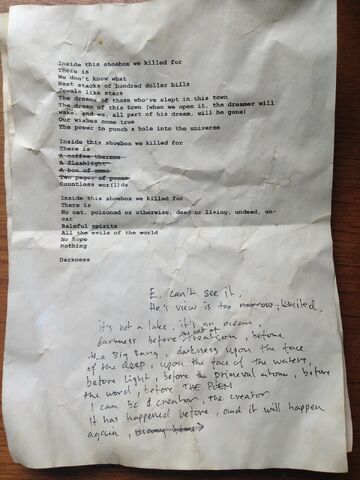 Inside this shoebox we killed for
There is
We don't know what
Neat stacks of hundred dollar bills
Jewels like stars
The dreams of those who've slept in this town
The dream of this town (when we open it, the dreamer will
wake, and we, all part of his dream, will be gone)
Our wishes come true
The power to punch a hole into the universe
Inside this shoebox we killed for
There is
A coffee thermos
A flashlight
A box of ammo
Two pages of poems
Countless wor(l)ds
Inside this shoebox we killed for
There is
No cat, poisoned or otherwise, dead or living, undead, un-
cat
Baleful spirits
All the evils of the world
No hope
Nothing
Darkness
E. can't see it.
He's view is too narrow, limited.
it's not a lake, it's an ocean,
darkness before an act of creation, before
the Big Bang, darkness upon the face
of the deep, upon the face of the waters,
before light, before the primeval atom, before
the word, before THE POEM
I can be a creator, the creator
It has happened before, and it will happen
again, many time